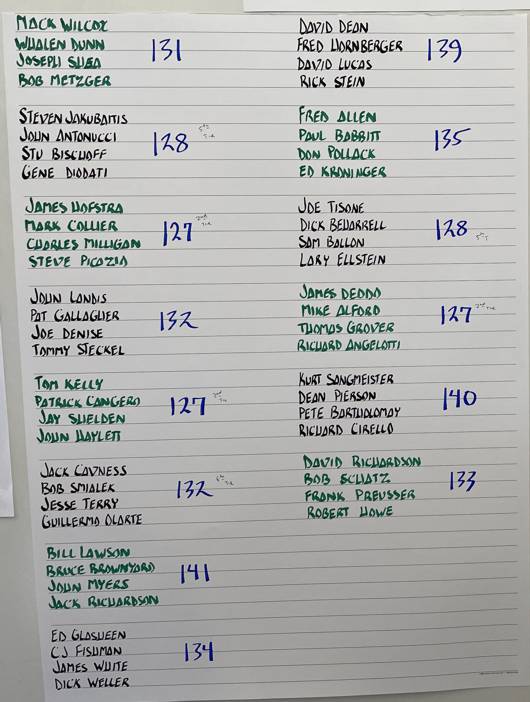 MACK WILCOX
WHALEN DUNN
JOSEPH SUGA
BOB METZGER
131
STEVEN JAKUBAITIS
JOHN ANTONUCCI
STU BISCHOFF
GENE DIODATI
128
5th
TIE
JAMES HOFSTRA
MARK COLLIER
CHARLES MILLIGAN
STEVE PICOZIA
127
2nd
TIE
JOHN LANDIS
PAT GALLAGHER
JOE DENISE
TOMMY STECKEL
132
TOM KELLY
PATRICK CANGERO
JAY SHELDEN
JOHN HAYLETT
127
2nd
TIE
JACK CAVNESS
BOB SMIALEK
JESSE TERRY
GUILLERMO OLARTE
132
TIE
BILL LAWSON
BRUCE BROWNYARD
JOHN MYERS
JACK RICHARDSON
141
ED GLASHEEN
CJ FISHMAN
JAMES WHITE
DICK WELLER
134
DAVID DEAN
FRED HORNBERGER
DAVID LUCAS
RICK STEIN
139
FRED ALLEN
PAUL BABBITT
DON POLLACK
ED KRONINGER
135
JOE TISONE
DICK BEHARRELL
SAM BALLON
LARY ELLSTEIN
128
5th T
JAMES DEDDO
MIKE ALFORD
THOMAS GROVER
RICHARD ANGELOTTI
127
2nd TIE
KURT SANGMEISTER
DEAN PIERSON
PETE BARTHOLOMAY
RICHARD CIRELLO
140
DAVID RICHARDSON
BOB SCHATZ
FRANK PREUSSER
ROBERT HOWE
133